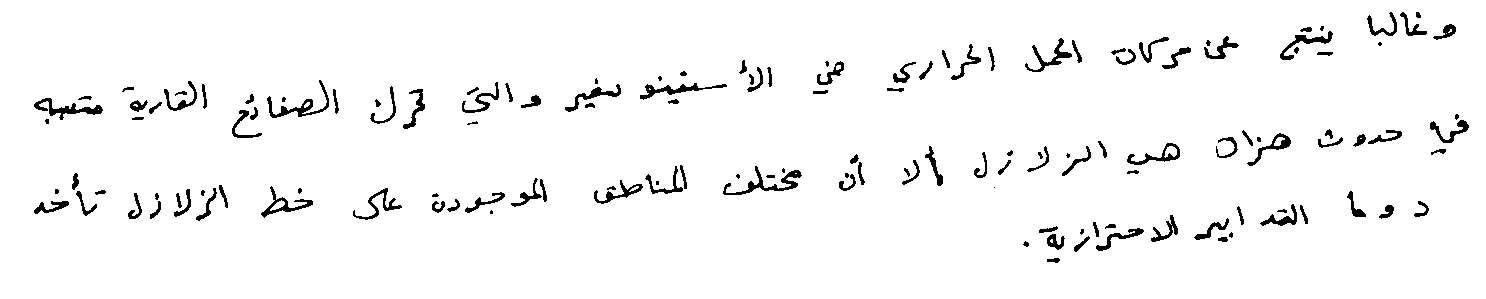 وغالبا ينتج عن حركات الحمل الحراري في الأستينوسفير والتي تحرك الصفائح القارية متسببه
في حدوث هزات هي الزلازل إلا أن مختلف المناطق الموجودة على خط الزلازل تأخذ
دوما التدابير الاحترازية.